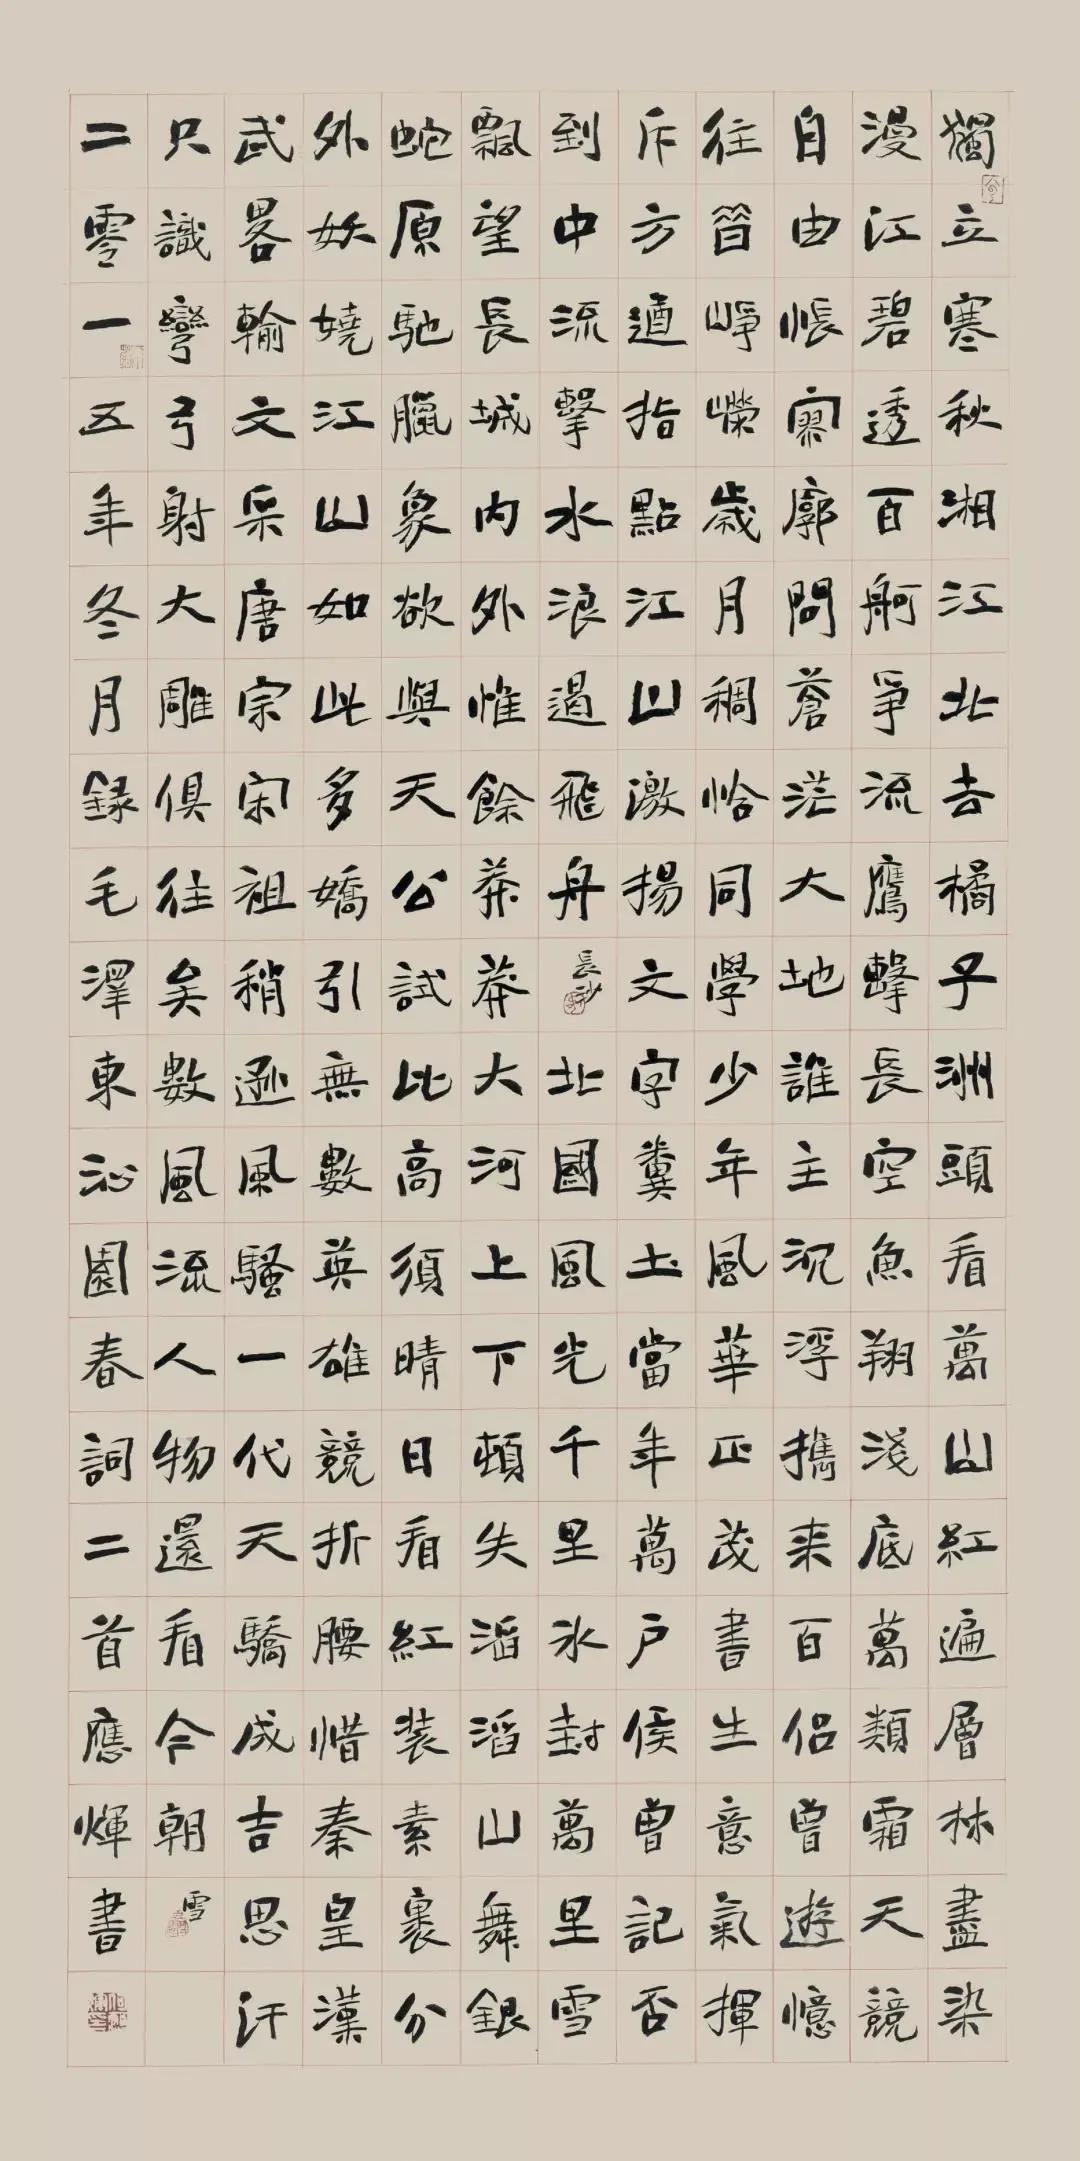 獨立寒秋湘江北去橘子洲頭看萬山紅遍層林盡染
漫江碧透百舸爭流鷹擊長空魚翔淺底萬類霜天競
自由悵寥廓問蒼茫大地誰主沉浮攜来百侣曾遊憶
往昔崢嶸歲月稠恰同學少年風華正茂書生意氣揮
斥方遒指點江山激揚文字糞土當年萬户侯曾記否
到中流擊水浪遏飛舟長沙北國風光千里冰封萬里雪
飄望長城内外惟餘莽莽大河上下頓失滔滔山舞銀
蛇原馳臘象欲與天公試比高須晴日看紅装素裹分
外妖嬈江山如此多嬌引無數英雄競折腰惜秦皇漢
武畧輸文采唐宗宋祖稍遜風騷一代天驕成吉思汗
只識彎弓射大雕俱往矣數風流人物還看今朝雪
二零一五年冬月録毛澤東沁園春詞二首應煇書